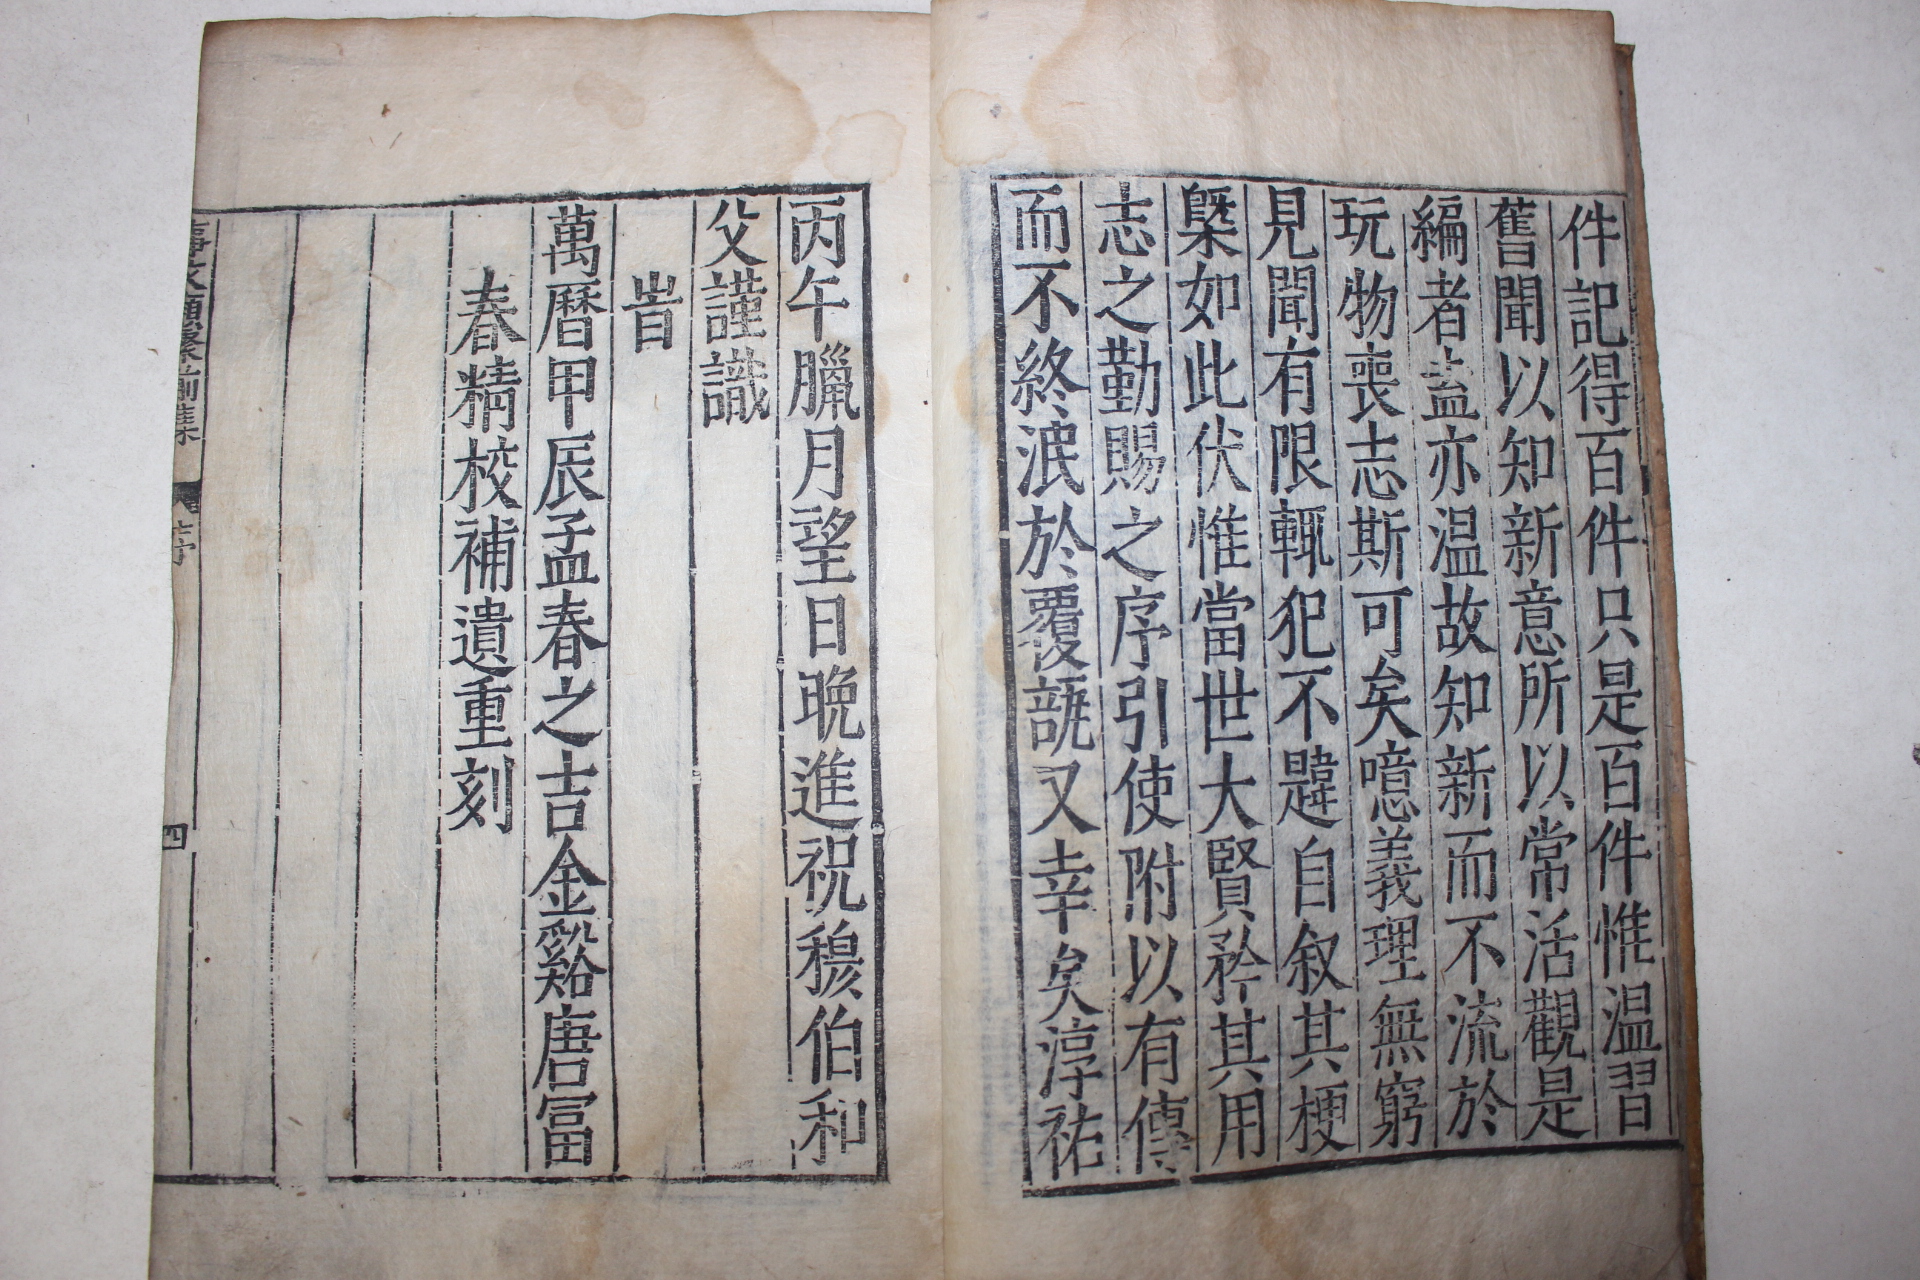 件記得百件只是百件惟温習
舊聞以知新意所以常活觀是
編者盖亦温故知新而不流於
玩物喪志斯可矣噫義理無窮
見聞有限輒犯不韙自叙其梗
槩如此伏惟當世大賢矜其用
志之勤賜之序引使附以有傳
而不終泯於覆瓿又幸矣淳祐
丙午臘月望日晚進祝穆伯和
父謹識
旹
萬曆甲辰孟春之吉金谿唐冨
春精校補遺重刻
事文類聚前集
序
四